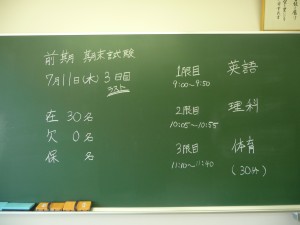 前期 期末試験
7月11日(水) 3日目
ラスト
在 30名
欠 0名
保 名
1限目 英語
9:00〜9:50
2限目 理科
10:05〜10:55
3限目 体育
11:10〜11:40 (30分)